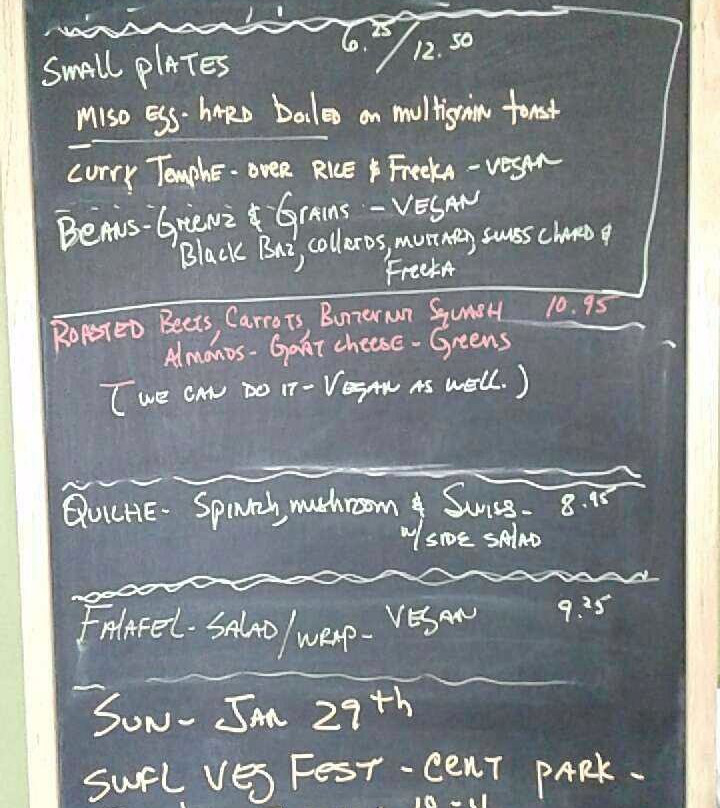 6.25/12.50
SMALL PLATES
MISO EGG - HARD BOILED on multigrain toast
CURRY TEMPHE - OVER RICE & FREEKA - VEGAN
BEANS - GREENZ & GRAINS - VEGAN
Black BNZ, COLLARDS, MUSTARD, SWISS CHARD &
FREEKA
ROASTED Beets, Carrots, Butternut Squash 10.95
Almonds - Goat cheese - Greens
(WE CAN DO IT - VEGAN AS WELL.)
QUICHE - Spinach, mushroom & Swiss - 8.95
w/ SIDE SALAD
FALAFEL - SALAD/WRAP - VEGAN 9.25
SUN - JAN 29th
SWFL VEG FEST - CENT PARK -